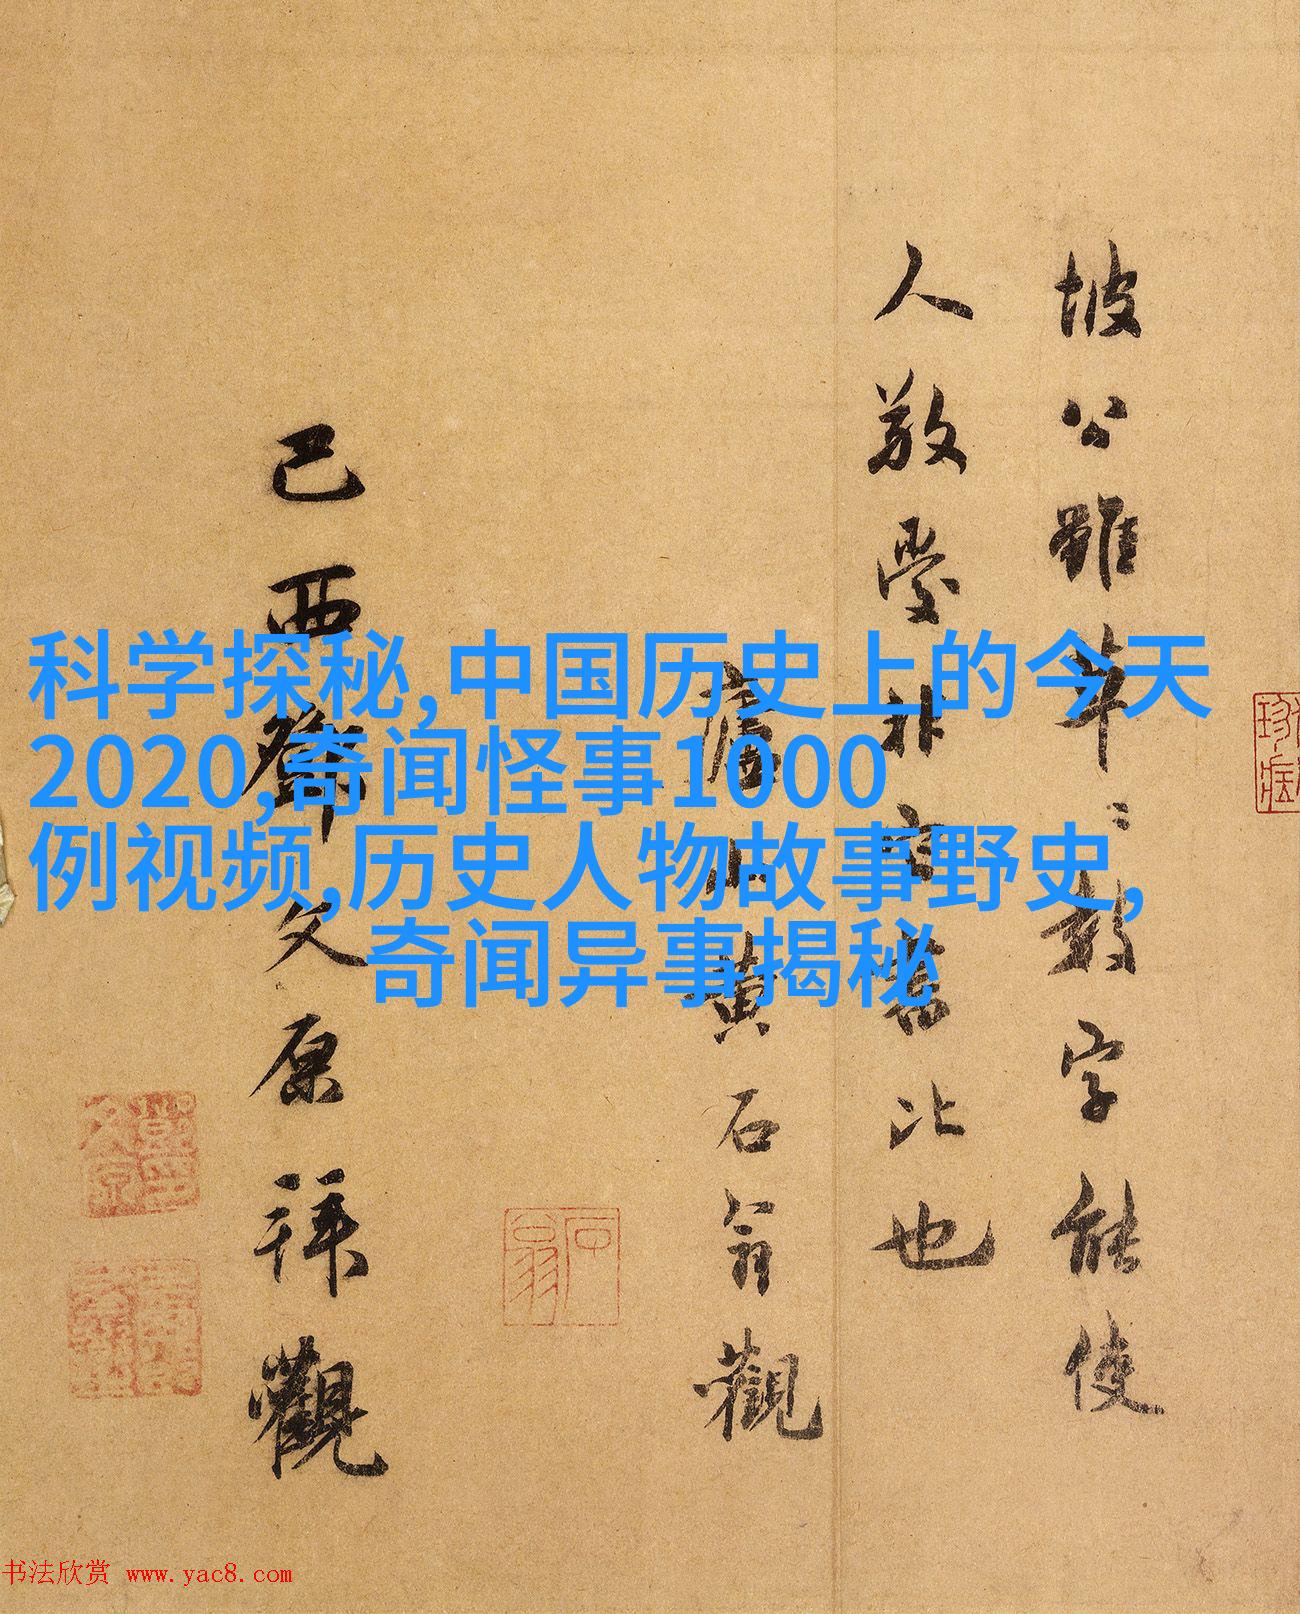 科学探秘,中国历史上的今天
2020,奇闻怪事1000
例视频,历史人物故事野史,
奇闻异事揭秘
坡公雖草〻數字能使
人敬愛非它書比也
黄石翁觀
己酉鄧文原拜觀
石翁
书法欣赏 www.yac8.com